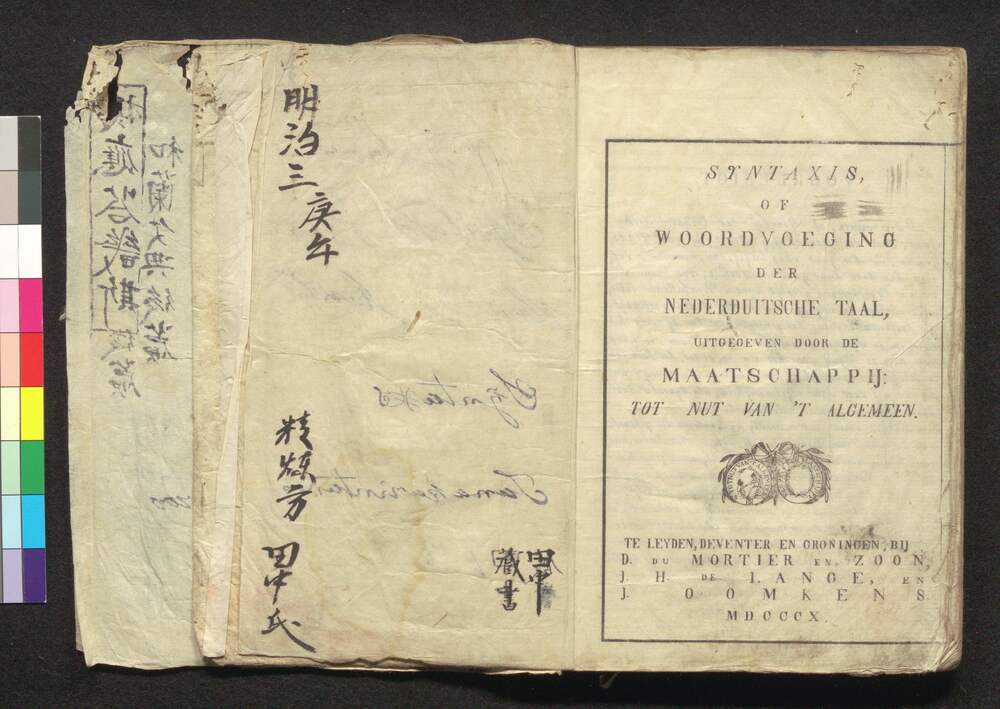 明治三
庚午
精煉方
田中氏
田中
蔵書
Syntaxis
和蘭文典後篇
SYNTAXIS,
OF
WOORDVOEGING
DER
NEDERDUITSCHE TAAL,
UITGEGEVEN DOOR DE
MAATSCHAPPIJ:
TOT NUT VAN 'T ALGEMEEN.
TE LEYDEN, DEVENTER EN GRONINGEN, BIJ
D. DU MORTIER EN ZOON,
J. H. DE LANGE, EN
J. OOMKENS.
MDCCCX.